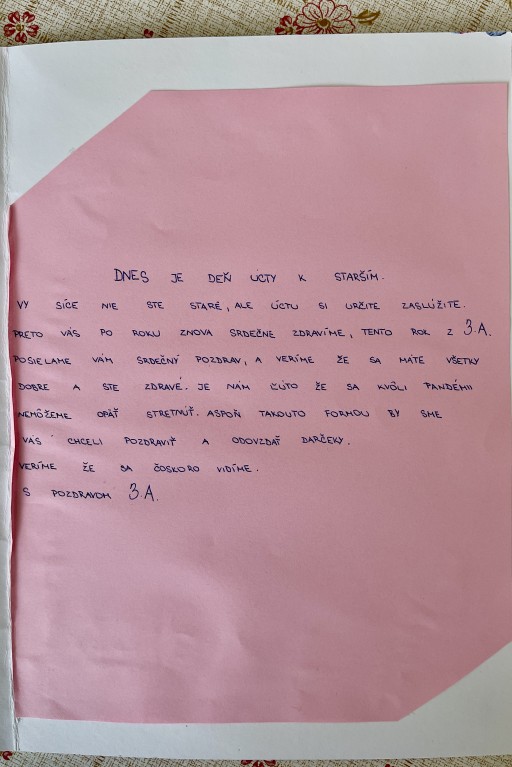 DNES JE DEŇ ÚCTY K STARŠÍM.
VY SÍCE NIE STE STARÉ, ALE ÚCTU SI URČITE ZASLÚŽITE.
PRETO VÁS PO ROKU ZNOVA SRDEČNE ZDRAVÍME, TENTO ROK Z 3.A.
POSIELAME VÁM SRDEČNÝ POZDRAV, A VERÍME ŽE SA MÁTE VŠETKY
DOBRE A STE ZDRAVÉ. JE NÁM ĽÚTO ŽE SA KVÔLI PANDÉMII
NEMÔŽEME OPÄŤ STRETNÚŤ. ASPOŇ TAKOUTO FORMOU BY SME
VÁS CHCELI POZDRAVIŤ A ODOVZDAŤ DARČEKY.
VERÍME ŽE SA ČOSKORO VIDÍME.
S POZDRAVOM 3.A.